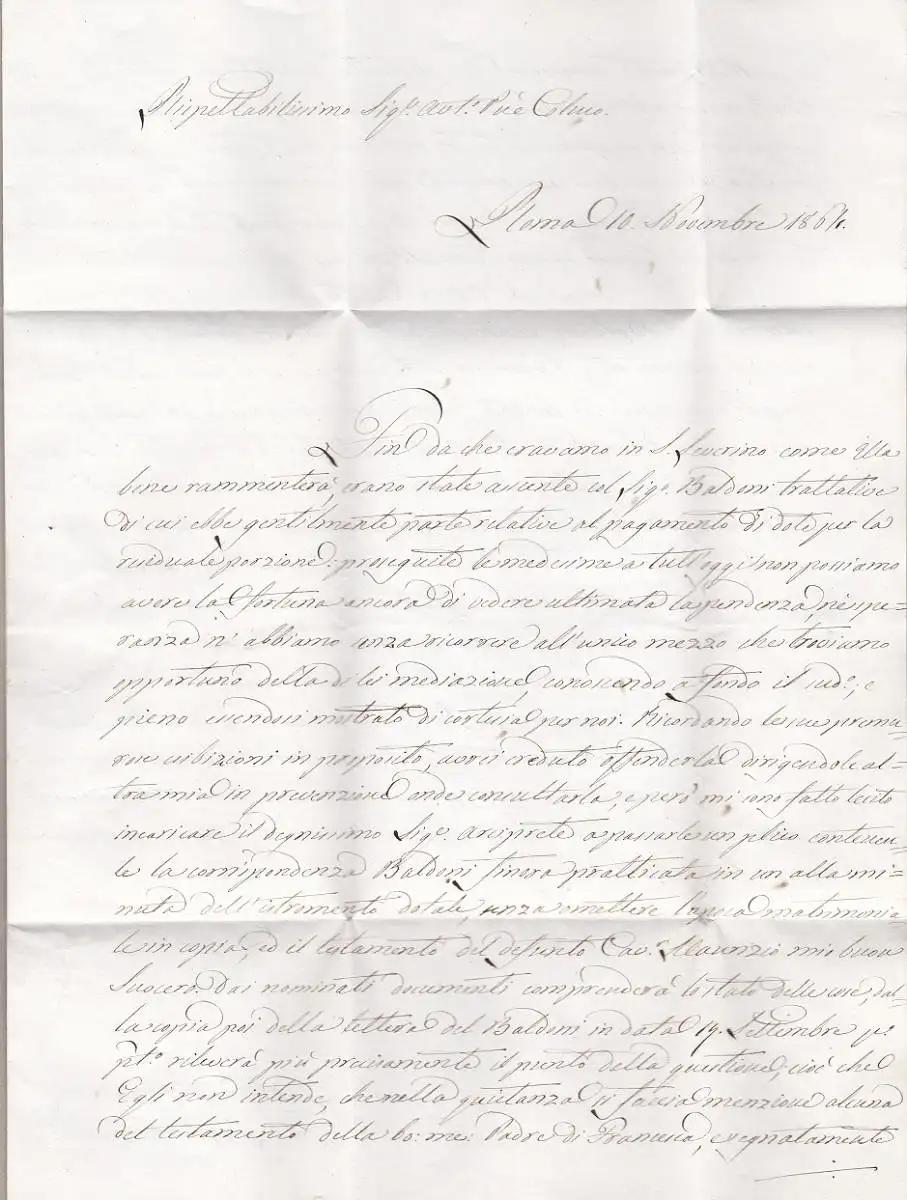 Rispettabilissimo Sigr. Avto.
Roma 10. Novembre 186
Fin da che eravamo in S. Severino come Ella
bene rammenterà, erano state assente col Sigr. Baldoni trattative
di cui ebbe gentilmente parte relative al pagamento di dote per la
residuale porzione: proseguite le medesime a tutt'oggi non possiamo
avere la fortuna ancora di vedere ultimata la pendenza, nè spe-
ranza n'abbiamo senza ricorrere all'unico mezzo che troviamo
opportuno della di lei mediazione, conoscendo a fondo il sudo., e
pieno essendosi mostrato di cortesia per noi. Ricordando le sue premu=
rose esibizioni in proposito, avrei creduto offenderla dirigendole al=
tra mia in prevenzione onde consultarla, e però mi sono fatto lecito
incaricare il degnissimo Sigr. Arciprete a passarle un plico contenen=
te la corrispondenza Baldoni finora pratticata in un alla mi=
nuta dell'istromento dotale, senza omettere l'apoca matrimonia=
le in copia, ed il testamento del defunto Cavr. Maurizio mio buon
Suocero. Dai nominati documenti comprenderà lo stato delle cose, dal=
la copia poi della lettera del Baldoni in data 19. Settembre po.
pto. rileverà più precisamente il punto della questione, cioè che
Egli non intende, che nella quietanza si faccia menzione alcuna
del testamento della bo: me: Padre di Francesca, e segnatamente